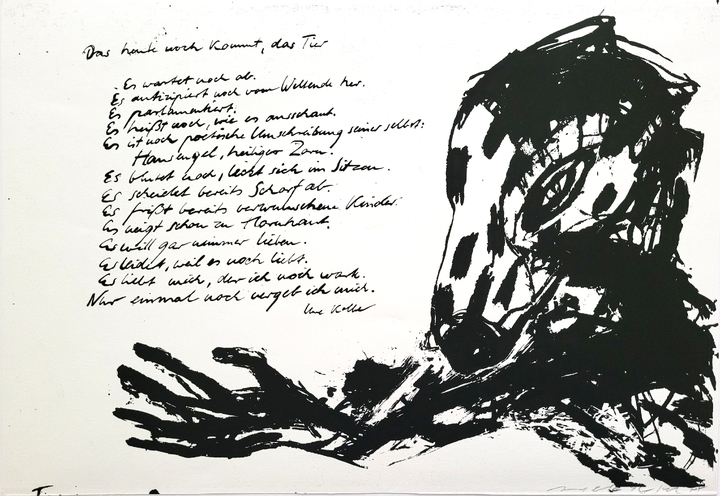 Das heute noch kommt, das Tier
Es wartet noch ab.
Es antizipiert noch vom Weltende her.
Es parlamentiert.
Es heißt noch, wie es ausschaut.
Es ist noch poetische Umschreibung seiner selbst:
Hausengel, heiliger Zorn.
Es blutet noch, leckt sich im Sitzen.
Es scheidet bereits Scharf ab.
Es frißt bereits verwunschene Kinder.
Es neigt schon zu Hornhaut.
Es will gar nimmer lieben.
Es leidet, weil es noch liebt.
Es liebt mich, der ich noch wart.
Nur einmal noch vergeb ich mich.
Uwe Kolbe